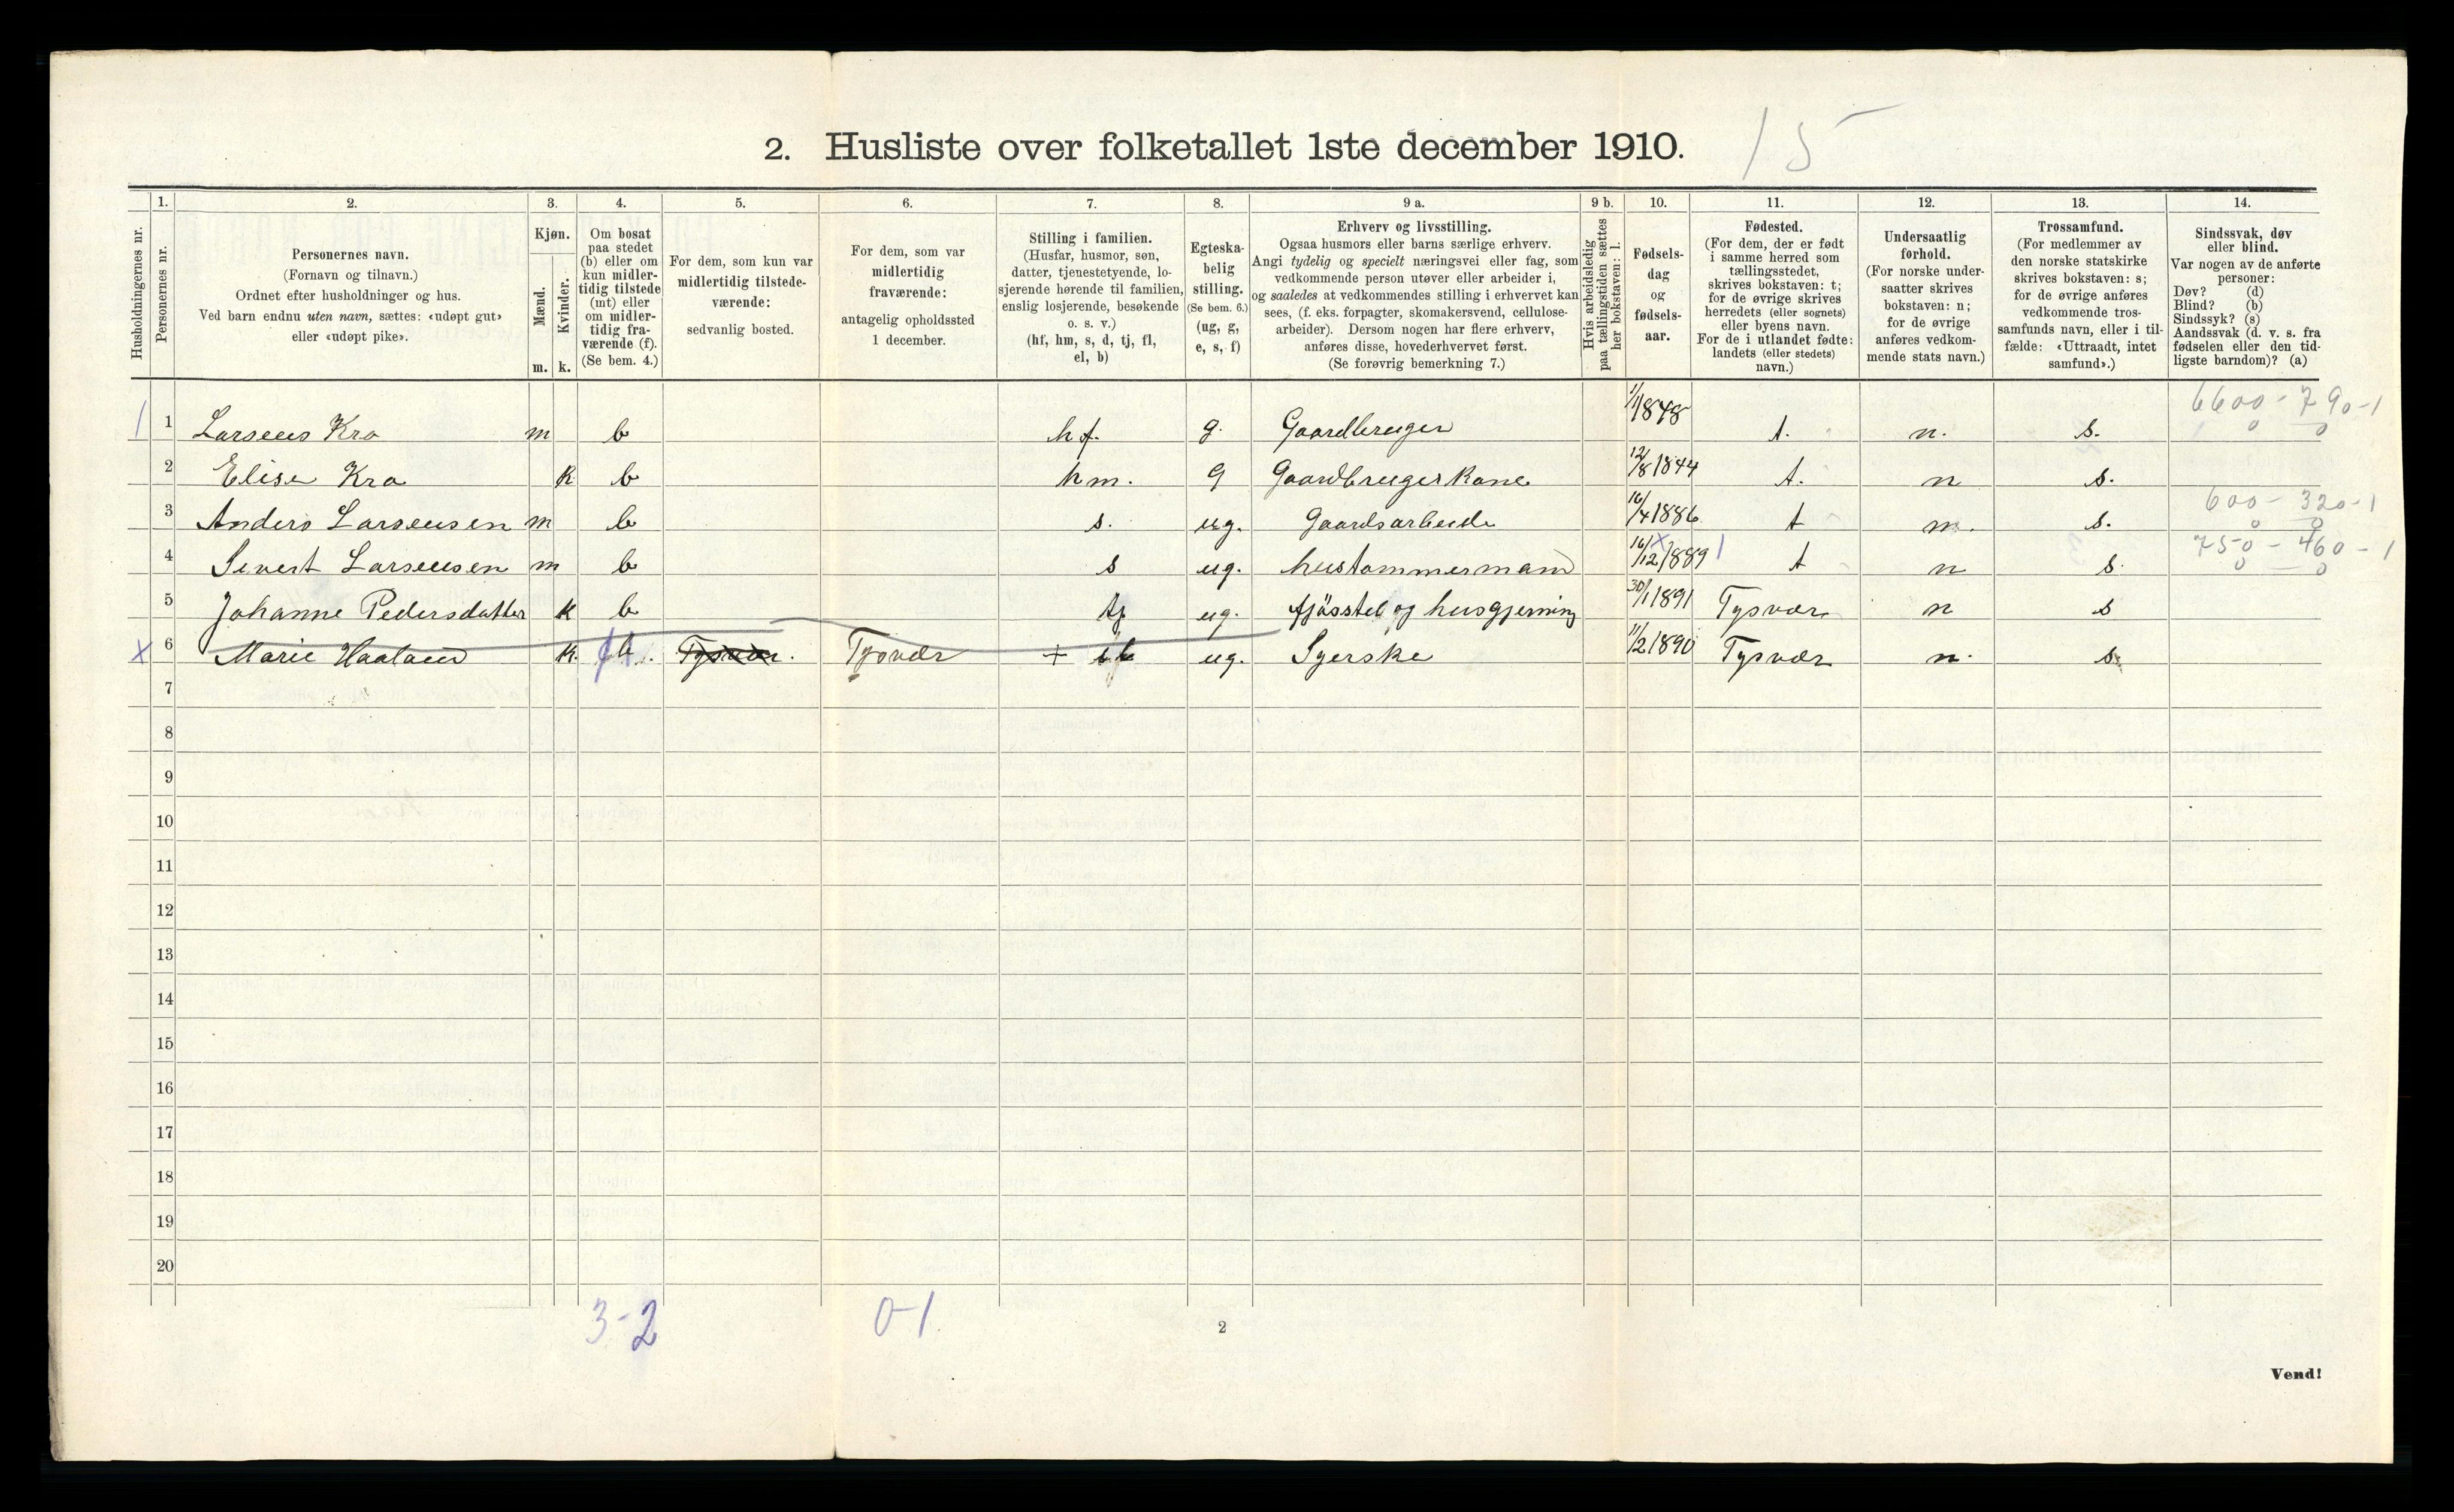 2. Husliste over folketallet 1ste december 1910.
15
1. 2. 3. 4. 5. 6. 7. 8. 9 a. 9 b. 10. 11. 12. 13. 14.
Husholdningernes nr.
Personernes nr.
Personernes navn.
(Fornavn og tilnavn.)
Ordnet efter husholdninger og hus.
Ved barn endnu uten navn, sættes: «udøpt gut»
eller «udøpt pike».
Kjøn.
Mænd.
Kvinder.
m. k.
Om bosat
paa stedet
(b) eller om
kun midler-
tidig tilstede
(mt) eller
om midler-
tidig fra-
værende (f).
(Se bem. 4.)
For dem, som kun var
midlertidig tilstede-
værende:
sedvanlig bosted.
For dem, som var
midlertidig
fraværende:
antagelig opholdssted
1 december.
Stilling i familien.
(Husfar, husmor, søn,
datter, tjenestetyende, lo-
sjerende hørende til familien,
enslig losjerende, besøkende
o. s. v.)
(hf, hm, s, d, tj, fl,
el, b)
Egteska-
belig
stilling.
(Se bem. 6.)
(ug, g,
e, s, f)
Erhverv og livsstilling.
Ogsaa husmors eller barns særlige erhverv.
Angi tydelig og specielt næringsvei eller fag, som
vedkommende person utøver eller arbeider i,
og saaledes at vedkommendes stilling i erhvervet kan
sees, (f. eks. forpagter, skomakersvend, cellulose-
arbeider). Dersom nogen har flere erhverv,
anføres disse, hovederhvervet først.
(Se forøvrig bemerkning 7.)
Hvis arbeidsledig
paa tællingstiden sættes
her bokstaven: l.
Fødsels-
dag
og
fødsels-
aar.
Fødested.
(For dem, der er født
i samme herred som
tællingsstedet,
skrives bokstaven: t;
for de øvrige skrives
herredets (eller sognets)
eller byens navn.
For de i utlandet fødte:
landets (eller stedets)
navn.)
Undersaatlig
forhold.
(For norske under-
saatter skrives
bokstaven: n;
for de øvrige
anføres vedkom-
mende stats navn.)
Trossamfund.
(For medlemmer av
den norske statskirke
skrives bokstaven: s;
for de øvrige anføres
vedkommende tros-
samfunds navn, eller i til-
fælde: «Uttraadt, intet
samfund».)
Sindssvak, døv
eller blind.
Var nogen av de anførte
personer:
Døv? (d)
Blind? (b)
Sindssyk? (s)
Aandssvak (d. v. s. fra
fødselen eller den tid-
ligste barndom)? (a)
6600 - 790-1
0 0
1 1 Larseus Kro m b hf. g. Gaardbruger 1/1 1848 t. n. s.
2 Elise Kro k b hm. g Gaardbrugerkone 12/8 1844 t. n s.
600 - 320-1
0 0
3 Anders Larseusen m b s. ug. Gaardsarbeide 16/4 1886 t n. s.
750 - 460 - 1
0 0
4 Sivert Larseusen m b s ug. hustømmermand 16/12 1889 t n s.
5 Johanne Pedersdatter k b tj ug. fjösstel og husgjerning 30/1 1891 Tysvær n s
x 6 Marie Haaland k. Tysvær. Tysvær + ug. Syerske 11/2 1890 Tysvær n. s.
7
8
9
10
11
12
13
14
15
16
17
18
19
20
3-2 0-1.
2
Vend!